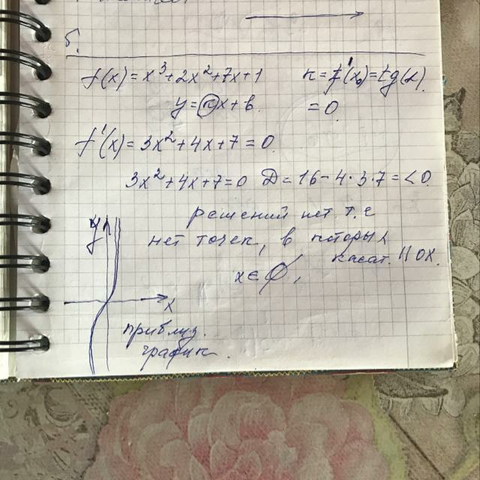 б.
f(x)=x³+2x²+7x+1 k=f'(x₀)=tg(α)
y=kx+b. =0.
f'(x)=3x²+4x+7=0
3x²+4x+7=0 D=16-4·3·7=<0
решений нет т.е
нет точек, в которых
касат. || OX.
x∈∅,
y
x
приблиз.
график.